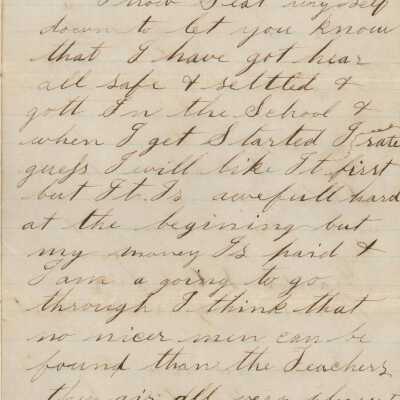 I now Seat my self
down to let you know
that I have got hear
all safe & settled &
gott In the School &
when I get Started I rate
guess I will like It first
but It Is awefull hard
at the begining but
my money Is paid &
I am a going to go
through I think that
no nicer men can be
found than the Teachers
they air all very pleasent